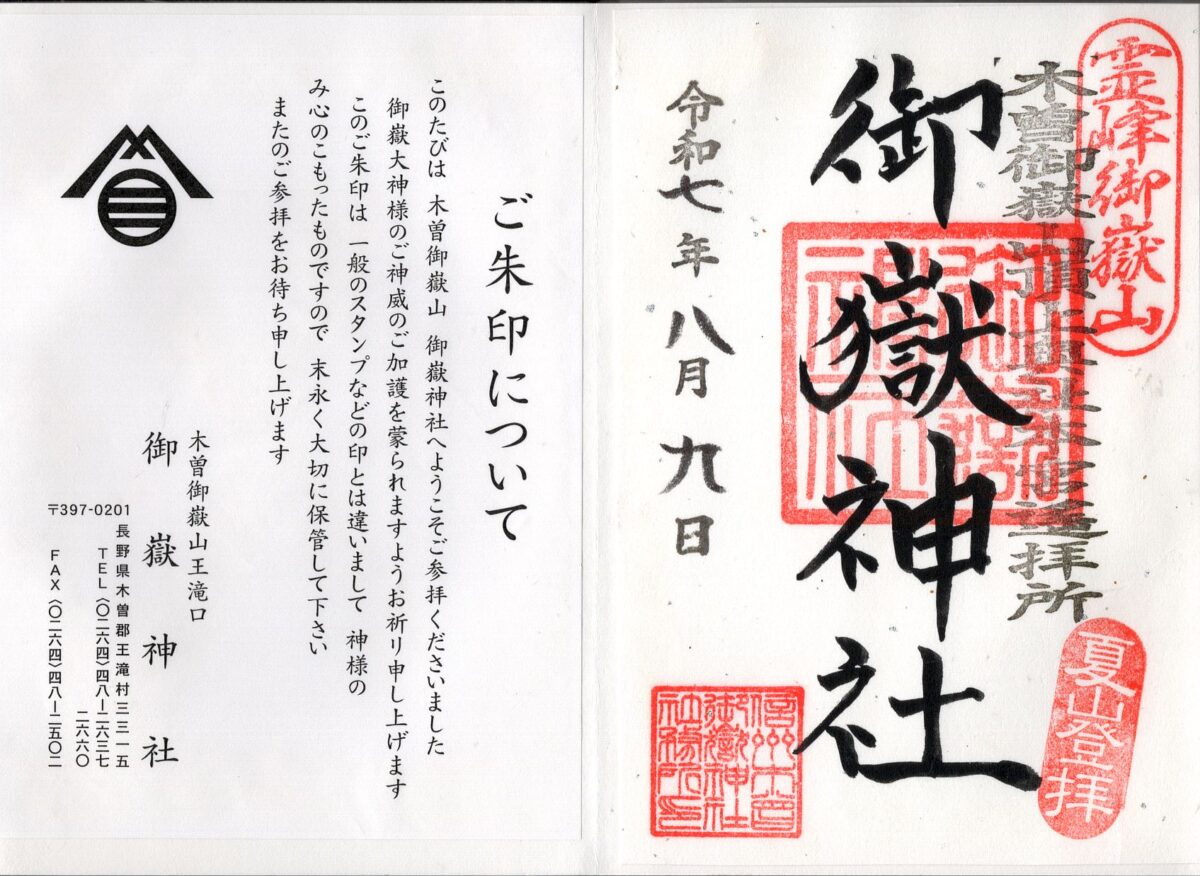 霊峰御嶽山
木曽御嶽山頂上奥社本宮遥拝所
夏山登拝
御嶽神社
令和七年八月九日
信州木曽
御嶽神社
社務所印
ご朱印について
このたびは 木曽御嶽山 御嶽神社へようこそご参拝くださいました
御嶽大神様のご神威のご加護を蒙られますようお祈り申し上げます
このご朱印は 一般のスタンプなどの印とは違いまして 神様の
み心のこもったものですので 末永く大切に保管して下さい
またのご参拝をお待ち申し上げます
木曽御嶽山王滝口
御嶽神社
〒397-0201
長野県木曽郡王滝村三三一五
TEL(〇二六四)四八ー二六三七
二六六〇
FAX(〇二六四)四八ー二五〇二